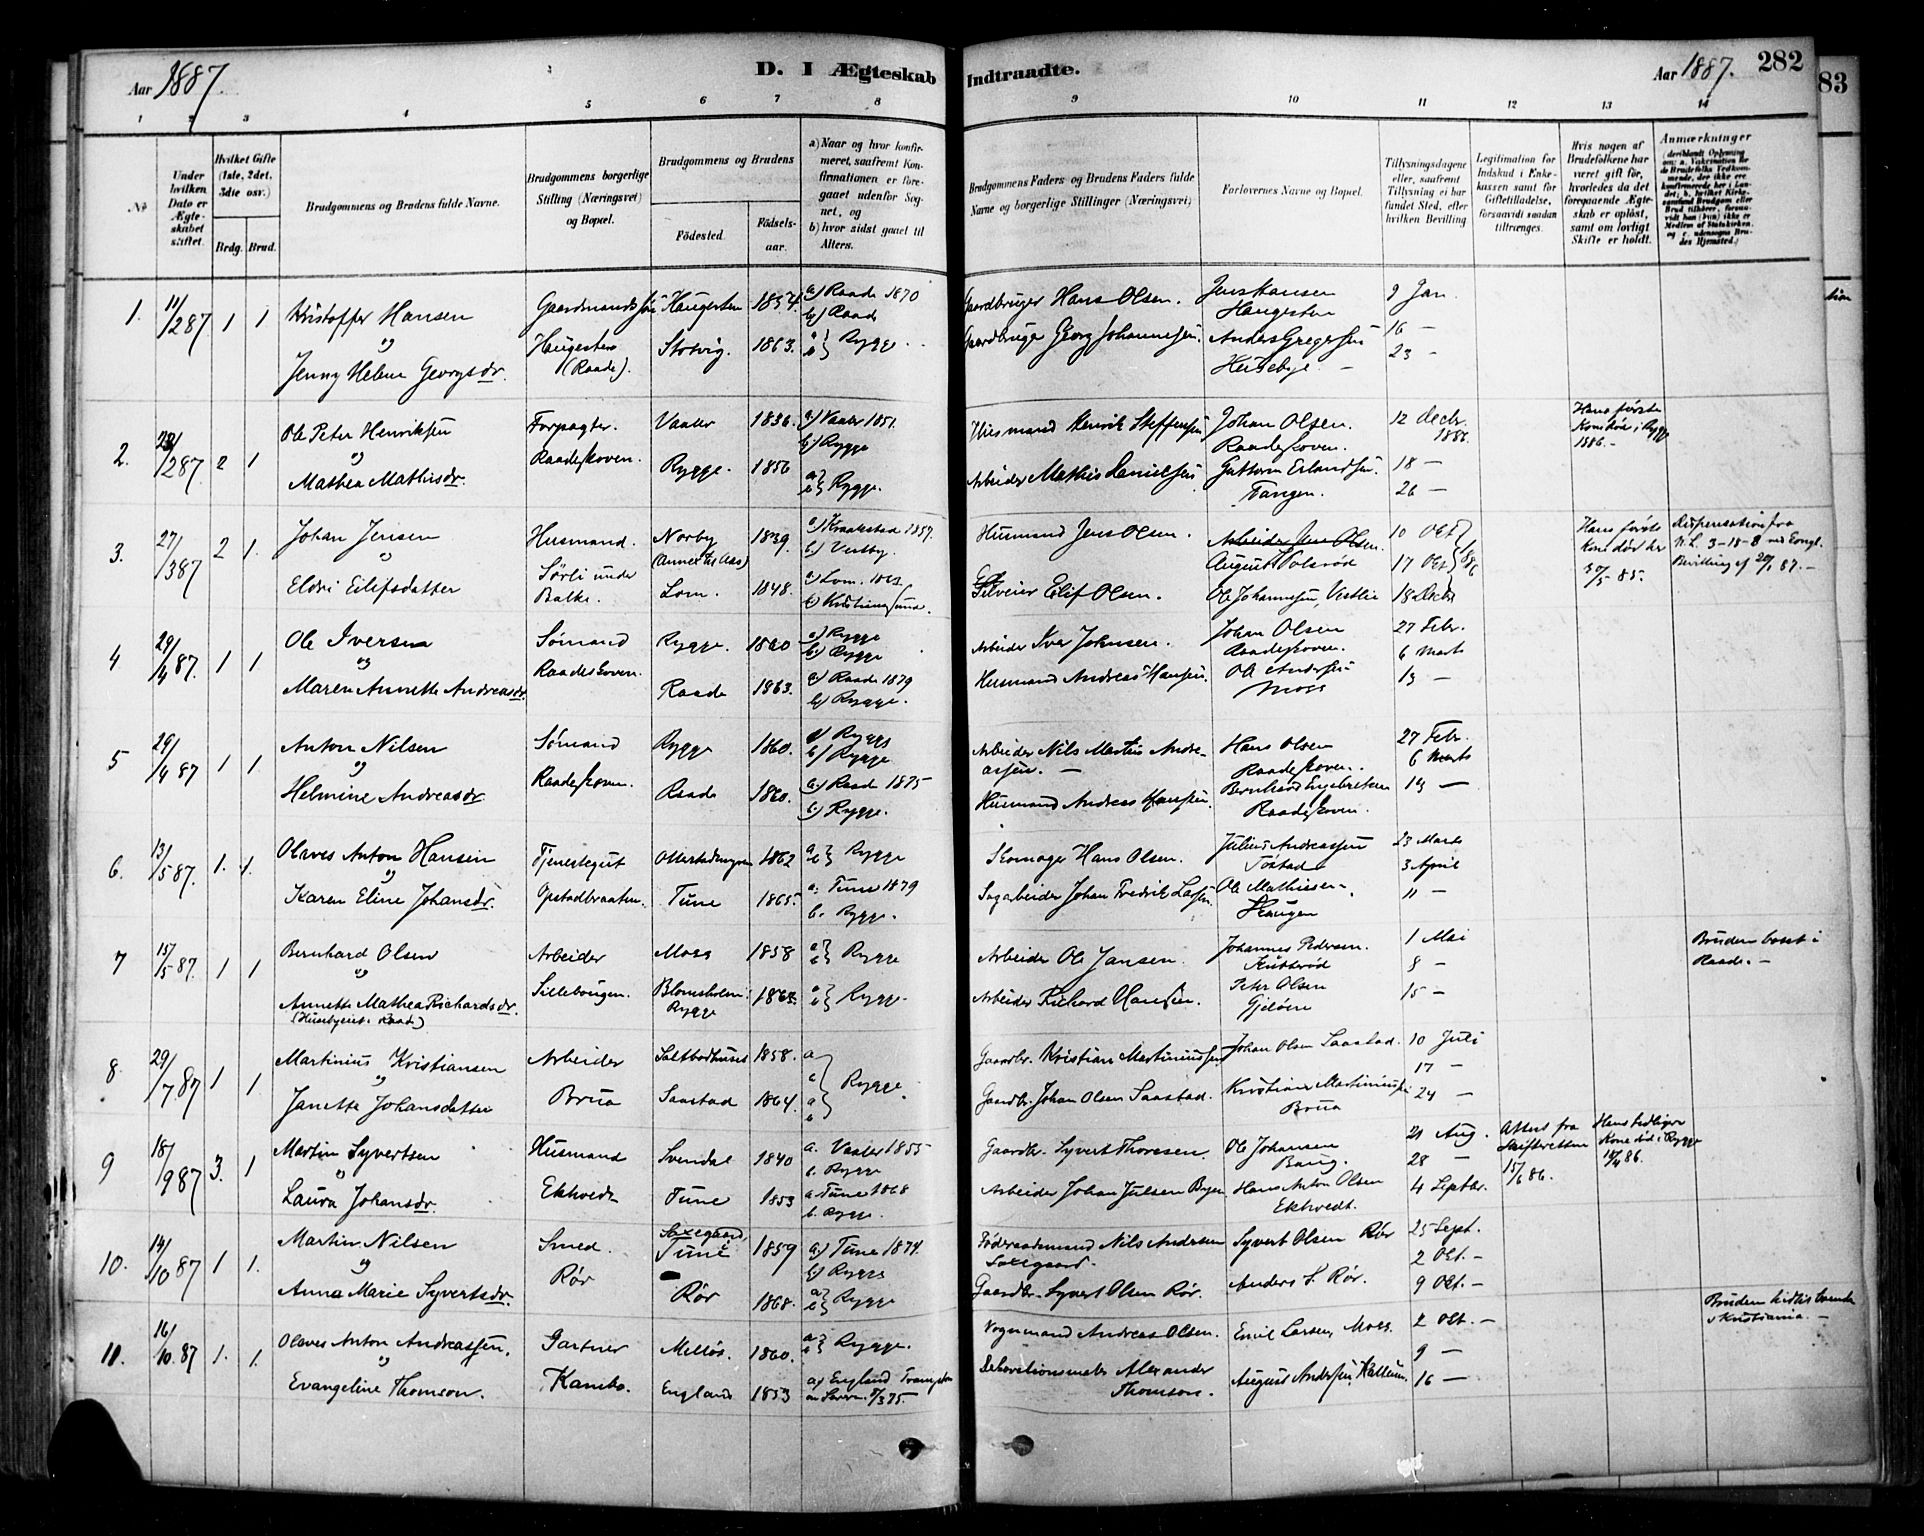 Aar 1887.
D. I Ægteskab Indtraadte.
Aar 1887.
282
83
1 2 3 4 5 6 7 8 9 10 11 12 13 14
No
Under hvilken Dato er Ægteskabet stiftet.
Hvilket Gifte (1ste, 2det, 3die osv.)
Brdg. Brud.
Brudgommens og Brudens fulde Navne.
Brudgommens borgerlige Stilling (Næringsvei) og Bopæl.
Brudgommens og Brudens
Fødested.
Fødselsaar.
a) Naar og hvor konfirmeret, saafremt Konfirmationen er foregaaet udenfor Sognet, og
b) hvor sidst gaaet til Alters.
Brudgommens Faders og Brudens Faders fulde Navne og borgerlige Stillinger (Næringsvei)
Forlovernes Navne og Bopæl.
Tillysningsdagene eller, saafremt Tillysning ei har fundet Sted, efter hvilken Bevilling
Legitimation for Indskud i Enkekassen samt for Giftetilladelse, forsaavidt saadan tiltrænges.
Hvis nogen af Brudefolkene har været gift før, hvorledes da det foregaaende Ægteskab er opløst, samt om lovligt Skifte er holdt.
Anmærkninger
1. 11/2 87 1 1 Kristoffer Hansen Gaardmandssøn Haugesten 1854. a) Raade 1870 b) Raade Gaardbruger Hans Olsen. Jens Hansen Haugesten 9 Jan.
og
Jenny Helene Georgsdr. Haugesten (Raade). Støtvig. 1863. a b } Rygge. Gaardbruger Georg Johannesen. Anders Gregersen Huseby. 16 — 23 —
2. 23/2 87 2 1 Ole Peter Henriksen Forpagter. Vaaler 1836. a) Vaaler 1851. b) Rygge Husmand Henrik Steffensen Johan Olsen. Raadeskoven. 12 Decbr. 1886. Hans første Kone døe i Rygge 1886.
og
Mathea Mathisdr. Raadeskoven. Rygge. 1856 a b } Rygge. Arbeider Mathis Danielsen Guttorm Erlandsen. Tangen. 18 — 26 —
3. 27/3 87 2 1. Johan Jensen Husmand. Norby (Annex til Aas) 1839. a) Kraakstad 1857. b) Vestby. Husmand Jens Olsen. Arbeider Jens Olsen. August Volsrød 10 Oct. 17 Oct. 86 Hans første Kone død her 30/5 85. Dispensation fra N. L. 3-18-8 ved Kongl. Bevilling af 20/1 87.
og
Eldri Eilifsdatter Sørli under Balke. Lom. 1848. a) Lom. 1863 b) Kristianssund. Eilif Olsen. Ole Johannesen, Vestlie 18 Decbr
4 29/4 87. 1 1 Ole Iversen Sømand Rygge. 1860 a) Rygge b) Rygge Arbeider Iver Johnsen. Johan Olsen Raadeskoven. 27 Febr. 6 Marts
og
Maren Annette Andreasdr. Raadeskoven. Raade 1863. a) Raade 1879 b) Rygge. Husmand Andreas Hansen. Ole Andersen Moss 13 —
5 29/4 87 1 1. Anton Nilsen Sømand Rygge 1860. a) Rygge b) Rygge Arbeider Nils Martin Andreassen. — Hans Olsen Raadeskoven. 27 Febr. 6 Marts
og
Helmine Andreasdr. Raadeskoven. Raade 1860. a) Raade 1875 b) Rygge. Husmand Andreas Hansen. Bernhard Engebretsen Raadeskoven. 13 —
6. 13/5 87. 1. 1. Olaves Anton Hansen Tjenestegut 1862 a b } Rygge Skomager Hans Olsen. Julius Andreassen Tøstad 23 Marts 3 April
og
Karen Eline Johansdr. Opstadbraaten. Tune 1865. a. Tune 1879 b. Rygge. Sagarbeider Johan Fredrik Larsen. Ole Mathisen Haugen 11 —
7 15/5 87. 1 1 Bernhard Olsen Arbeider Moss 1858 a b } Rygge Arbeider Ole Jansen. Johannes Pedersen. Kubberød 1 Mai 8 — Bruden bosat i Raade. —
og
Annette Mathea Richardsdr. Sillebougen. Blomsholm Rygge 1863. a b } Rygge. Arbeider Rickard Hansen. Peter Olsen Gjeløen 15 —
8. 29/7 87 1 1. Martinius Kristiansen Arbeider Saltbodhuset 1858. a b a b } Rygge. Gaardbr. Kristian Martiniussen Johan Olsen Saastad. 10 Juli 17 —
og
Janette Johansdatter Brua Saastad 1864. Gaardbr. Johan Olsen Saastad. Kristian Martiniussen Brua 24 —
9 18/9 87 3. 1 Martin Syvertsen Husmand Svendal 1840 a. Vaaler 1855 b. Rygge Gaardbr. Syvert Thoresen. Ole Johansen Baug. 21 Aug. 28 — Attest fra Skifteretten 15/6 86. Hans tidligere Kone død i Rygge 18/4 86.
og
Laura Johansdr. Ekhvedt Tune 1853 a. Tune 1868 b. Rygge. Arbeider Johan Julsen Hans Anton Olsen Ekhvedt. 4 Septbr.
10. 14/10 87 1 1. Martin Nilsen Smed. Saxegaard, Tune 1859 a) Tune 1874. b) Rygge Føderaadsmand Nils Andersen Saxegaard. Syvert Olsen Rør 25 Sept. 2 Oct. —
og
Anna Marie Syvertsdr. Rør Rør 1868. a b } Rygge Gaardbr. Syvert Olsen Rør. Anders S. Rør. 9 Oct. —
11. 16/10 87 1. 1. Olaves Anton Andreassen. Gartner Melløs. 1860. a b } Rygge. Vognmand Andreas Olsen. Emil Larsen Moss. 2 Oct. — 9 — Bruden hidtil boende i Kristiania. —
og
Evangeline Thomson. Kambo. England 1853 a) England 7/3 75. Dekorationsmaler Alexander Thomson. August Andersen, Kallum. 16 —